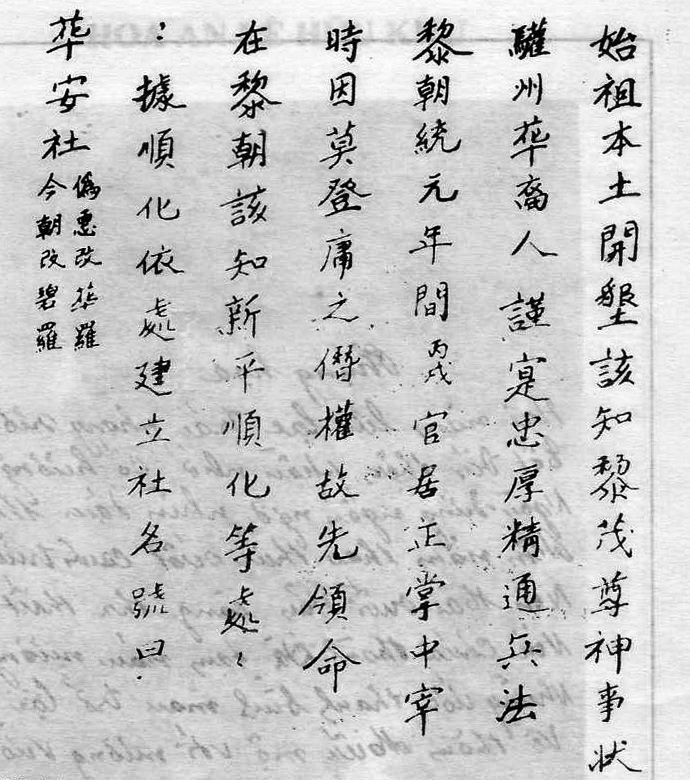 始祖本土開墾該知黎茂尊神事狀
驩州苹裔人謹寔忠厚精通兵法
黎朝統元年間丙戌官居正掌中宰
時因莫登庸之僭權故先領命
在黎朝該知新平順化等處
據順化依處建立社名號曰
苹安社
偽惠改苹羅
今朝改碧羅